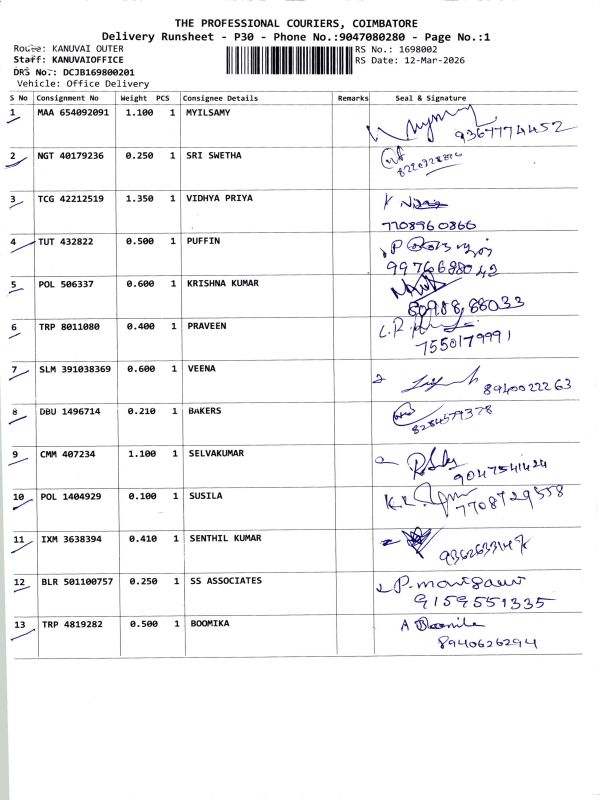 THE PROFESSIONAL COURIERS, COIMBATORE
Delivery Runsheet - P30 - Phone No.:9047080280 - Page No.:1
Route: KANUVAI OUTER
RS No.: 1698002
Staff: KANUVAIOFFICE
RS Date: 12-Mar-2026
DRS No.: DCJB169800201
Vehicle: Office Delivery
S No Consignment No Weight PCS Consignee Details Remarks Seal & Signature
1 MAA 654092091 1.100 1 MYILSAMY
9367774452
2 NGT 40179236 0.250 1 SRI SWETHA
3 TCG 42212519 1.350 1 VIDHYA PRIYA
7708960866
4 TUT 432822 0.500 1 PUFFIN
9976688042
5 POL 506337 0.600 1 KRISHNA KUMAR
80988,88033
6 TRP 8011080 0.400 1 PRAVEEN
7550179991
7 SLM 391038369 0.600 1 VEENA
8940022263
8 DBU 1496714 0.210 1 BAKERS
8284579378
9 CMM 407234 1.100 1 SELVAKUMAR
9047541424
10 POL 1404929 0.100 1 SUSILA
7708729558
11 IXM 3638394 0.410 1 SENTHIL KUMAR
12 BLR 501100757 0.250 1 SS ASSOCIATES
9159551335
13 TRP 4819282 0.500 1 BOOMIKA A Boomika
8940626294